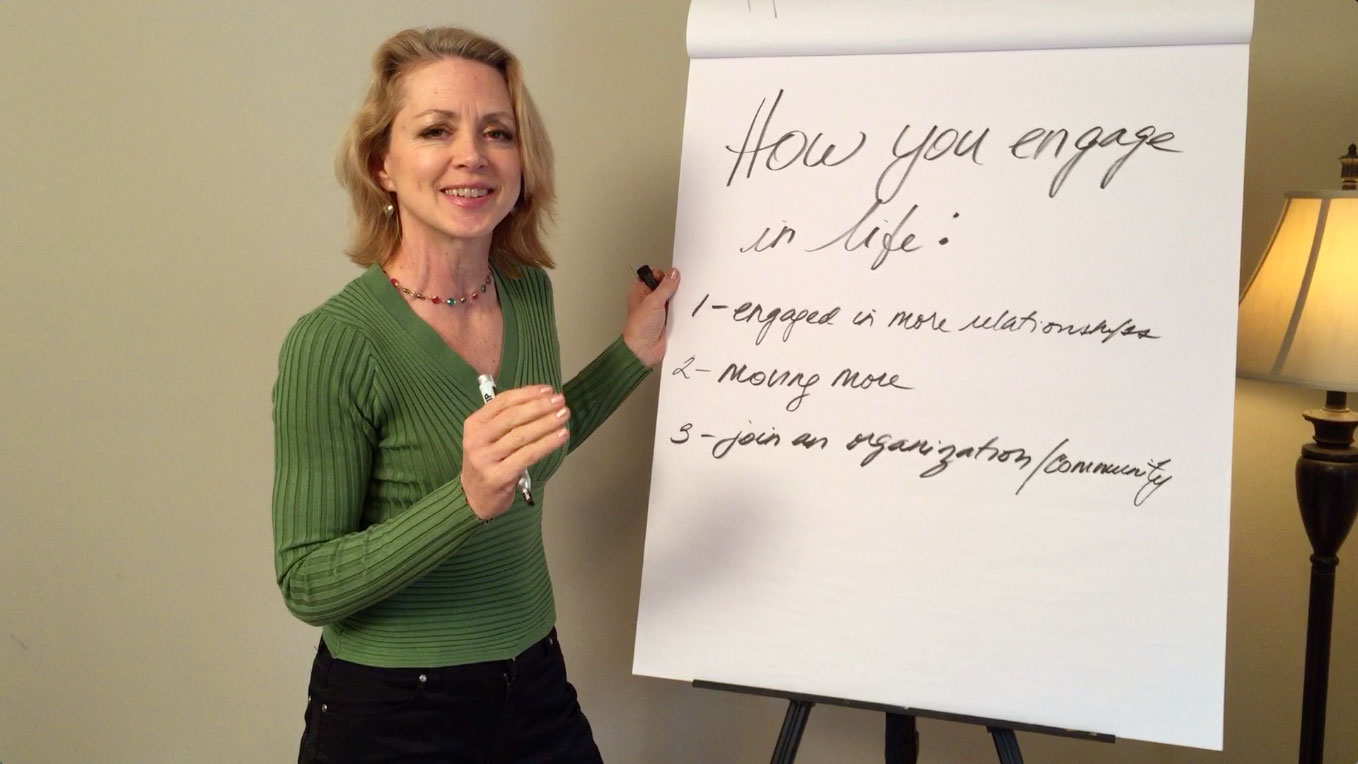 How you engage
in life:
1-engaged in more relationships
2-moving more
3-join an organization/community